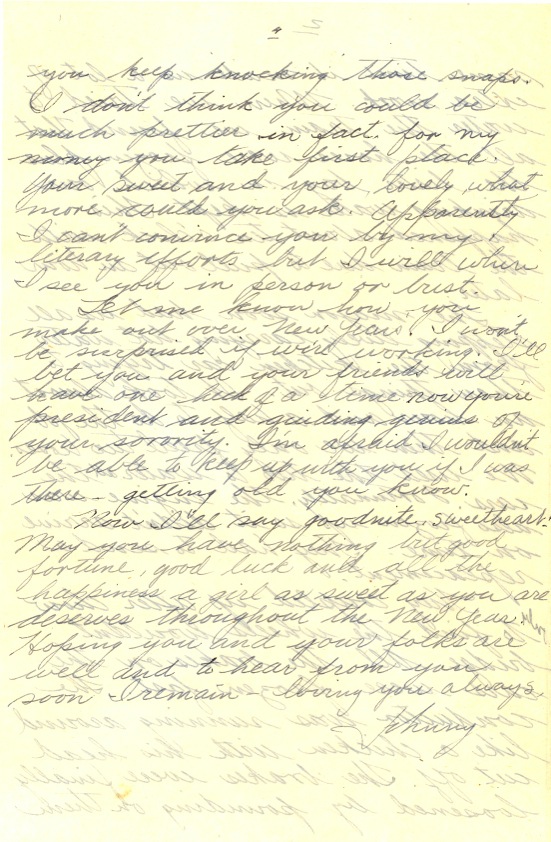 4
you keep knocking those snaps.
I don't think you could be
much prettier in fact. for my
money you take first place.
Your sweet and your lovely what
more could you ask. Apparently
I can't convince you by my
literary efforts but I will when
I see you in person or bust.
Let me know how you
make out over New Years. I won't
be surprised if we're working. I'll
bet you and your friends will
have one heck of a time now you're
president and guiding genius of
your sorority. I'm afraid I wouldn't
be able to keep up with you if I was
there - getting old you know.
Now I'll say goodnite, sweetheart.
May you have nothing but good
fortune, good luck and all the
happiness a girl as sweet as you are
deserves throughout the New Year.
Hoping you and your folks are
well and to hear from you
soon I remain loving you always,
Johnny